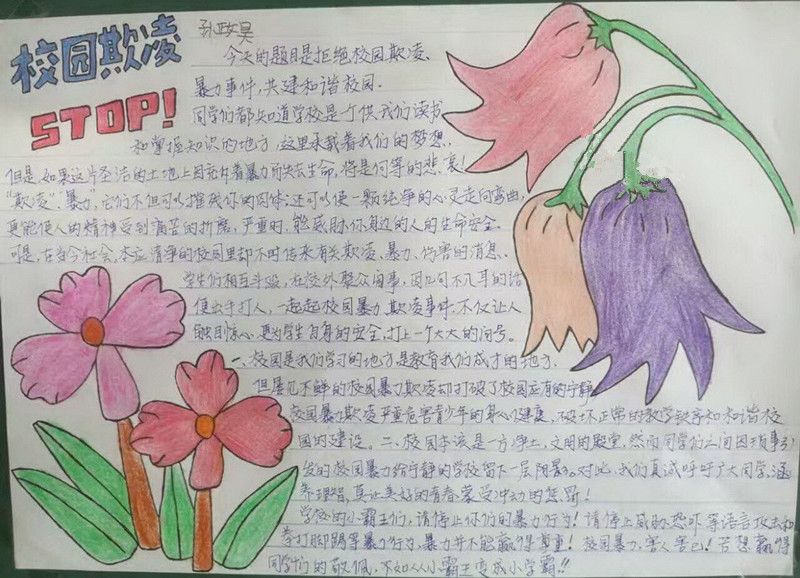 校园欺凌
STOP!
孙政昊
今天的题目是拒绝校园欺凌、
暴力事件,共建和谐校园.
同学们都知道学校是个供我们读书
和掌握知识的地方,这里承载着我们的梦想.
但是,如果这片圣洁的土地上因充斥着暴力而失去生命,将是何等的悲哀!
“欺凌”、暴力”,它们不但可以摧残你的肉体;还可以使一颗纯净的心灵走向弯曲,
更能使人的精神受到痛苦的折磨,严重时,能威胁你身边的人的生命安全。
可是,在当今社会,本应清净的校园里却不时传来有关欺凌、暴力、伤害的消息.
学生们相互斗殴,在校外聚众闹事,因几句不入耳的话
便出手打人,一起起校园暴力、欺凌事件,不仅让人
触目惊心,更为学生自身的安全,打上一个大大的问号。
一、校园是我们学习的地方是教育我们成才的地方.
但屡见不鲜的校园暴力欺凌却打破了校园应有的宁静
校园暴力欺凌严重危害青少年的身心健康,破坏正常的教学秩序和和谐校
园的建设。二、校园本该是一方净土,文明的殿堂,然而同学们之间因琐事引
发的校园暴力给宁静的学校留下一层阴影,对此,我们真诚呼吁广大同学,涵
养理智,莫让美好的青春蒙受冲动的惩罚!
学校的小霸王们,请停止你们的暴力行为!请停止威胁、恐吓等语言攻击和
拳打脚踢等暴力行为,暴力并不能赢得尊重!校园暴力,害人害己!若想赢得
同学们的敬佩,不如从小霸王变成小学霸!!